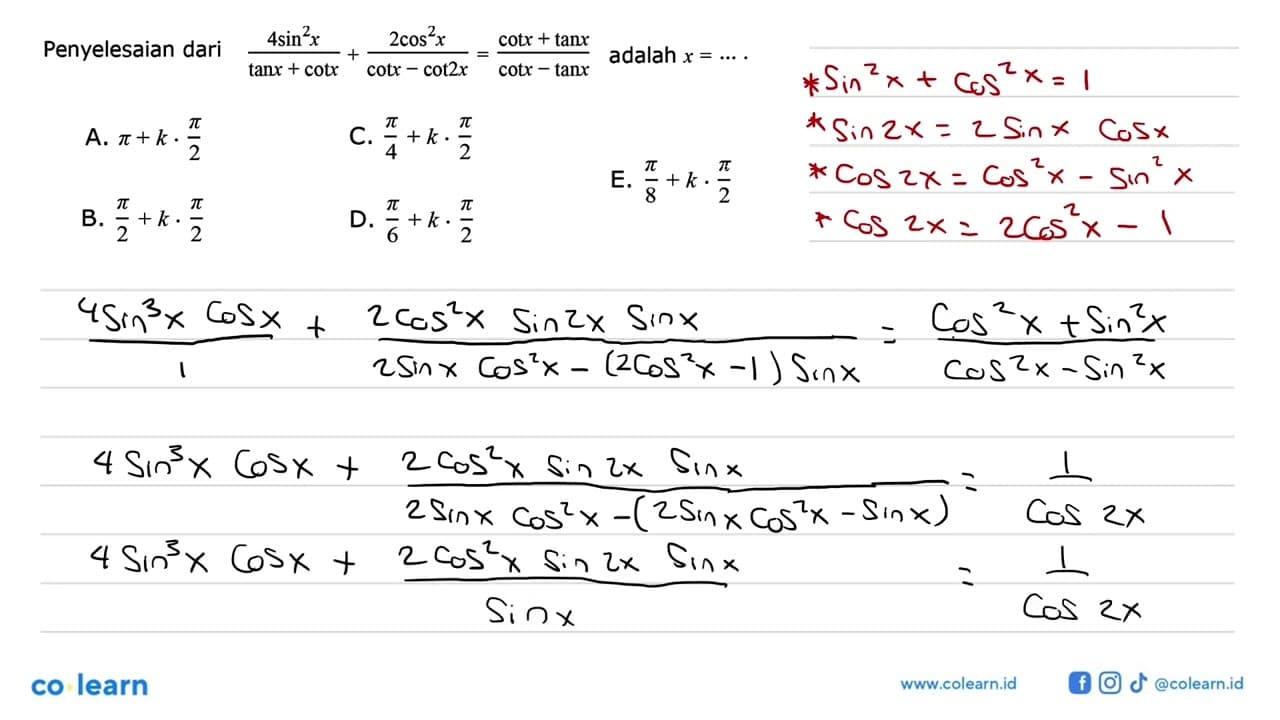 Penyelesaian dari 4sin²x/(tanx + cotx) + 2cos²x/(cotx − cot2x) = (cotx + tanx)/(cotx − tanx) adalah x = ... .
A. π + k · π/2
C. π/4 + k · π/2
E. π/8 + k · π/2
B. π/2 + k · π/2
D. π/6 + k · π/2
* Sin²x + Cos²x = 1
* Sin 2x = 2 Sin x Cos x
* Cos 2x = Cos²x − Sin²x
* Cos 2x = 2Cos²x − 1
4Sin³x Cos x/1 + 2Cos²x Sin2x Sinx/(2Sin x Cos²x − (2Cos²x −1) Sinx) = (Cos²x + Sin²x)/(Cos²x − Sin²x)
4 Sin³x Cos x + 2Cos²x Sin 2x Sinx/(2Sinx Cos²x − (2Sinx Cos²x − Sinx)) = 1/Cos 2x
4 Sin³x Cos x + 2Cos²x Sin 2x Sinx/Sinx = 1/Cos 2x
co learn
www.colearn.id
@colearn.id